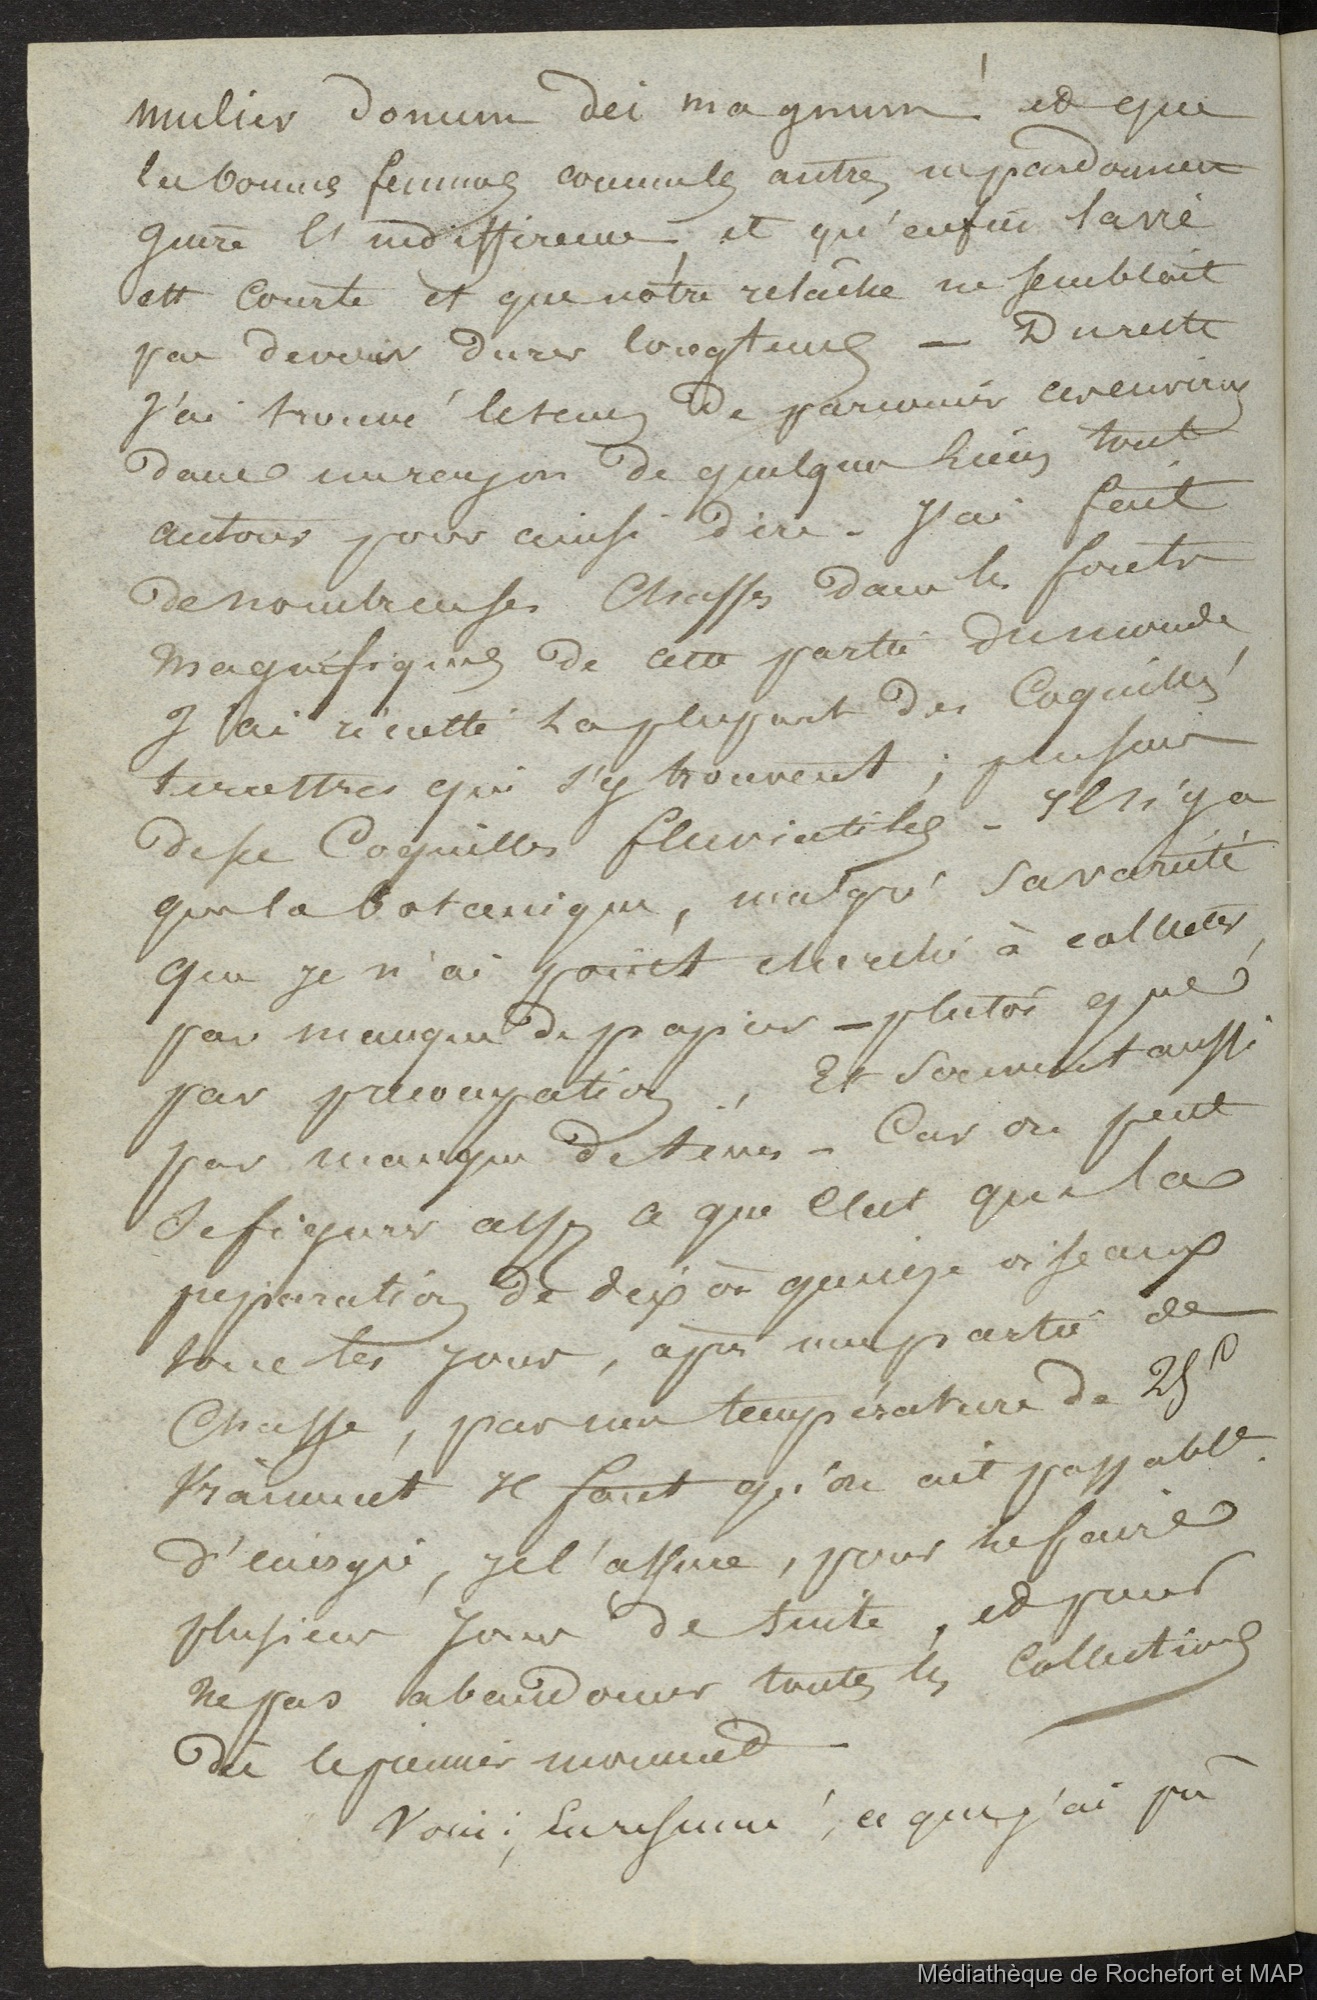 mulier donum dei magnum ! et que
les bonnes femmes comme les autres ne pardonnent
guère l'indifférence, et qu'enfin la vie
est courte et que nôtre relâche ne sembloit
pas devoir durer longtems — Dureste
J'ai trouvé le tems de parcourir ces environs
dans un rayon de quelques lieues tout
autour pour ainsi dire - J'ai fait
de nombreuses Chasses dans les forêts
magnifiques de cette partie du monde,
J'ai récolté la plupart des Coquilles
terrestres qui s'y trouvent ; plusieurs
de ses Coquilles fluviatiles - Il n'y a
que la botanique, malgré sa variété
que je n'ai point cherché à collecter,
par manque de papier — plutôt que
par préocupation, Et souvent aussi
par manque de tems - Car on peut
se figurer assez ce que c'est que la
préparation de dix ou quinze oiseaux
tous les jours, après une partie de
Chasse, par une température de 25°
Vraiment il faut qu'on ait passable.
d'énergie, je l'assure, pour le faire
plusieurs jours de suite, et pour
ne pas abandonner toutes les Collections
dès le premier moment —
Voici ; en résumé, ce que j'ai pû
Médiathèque de Rochefort et MAP